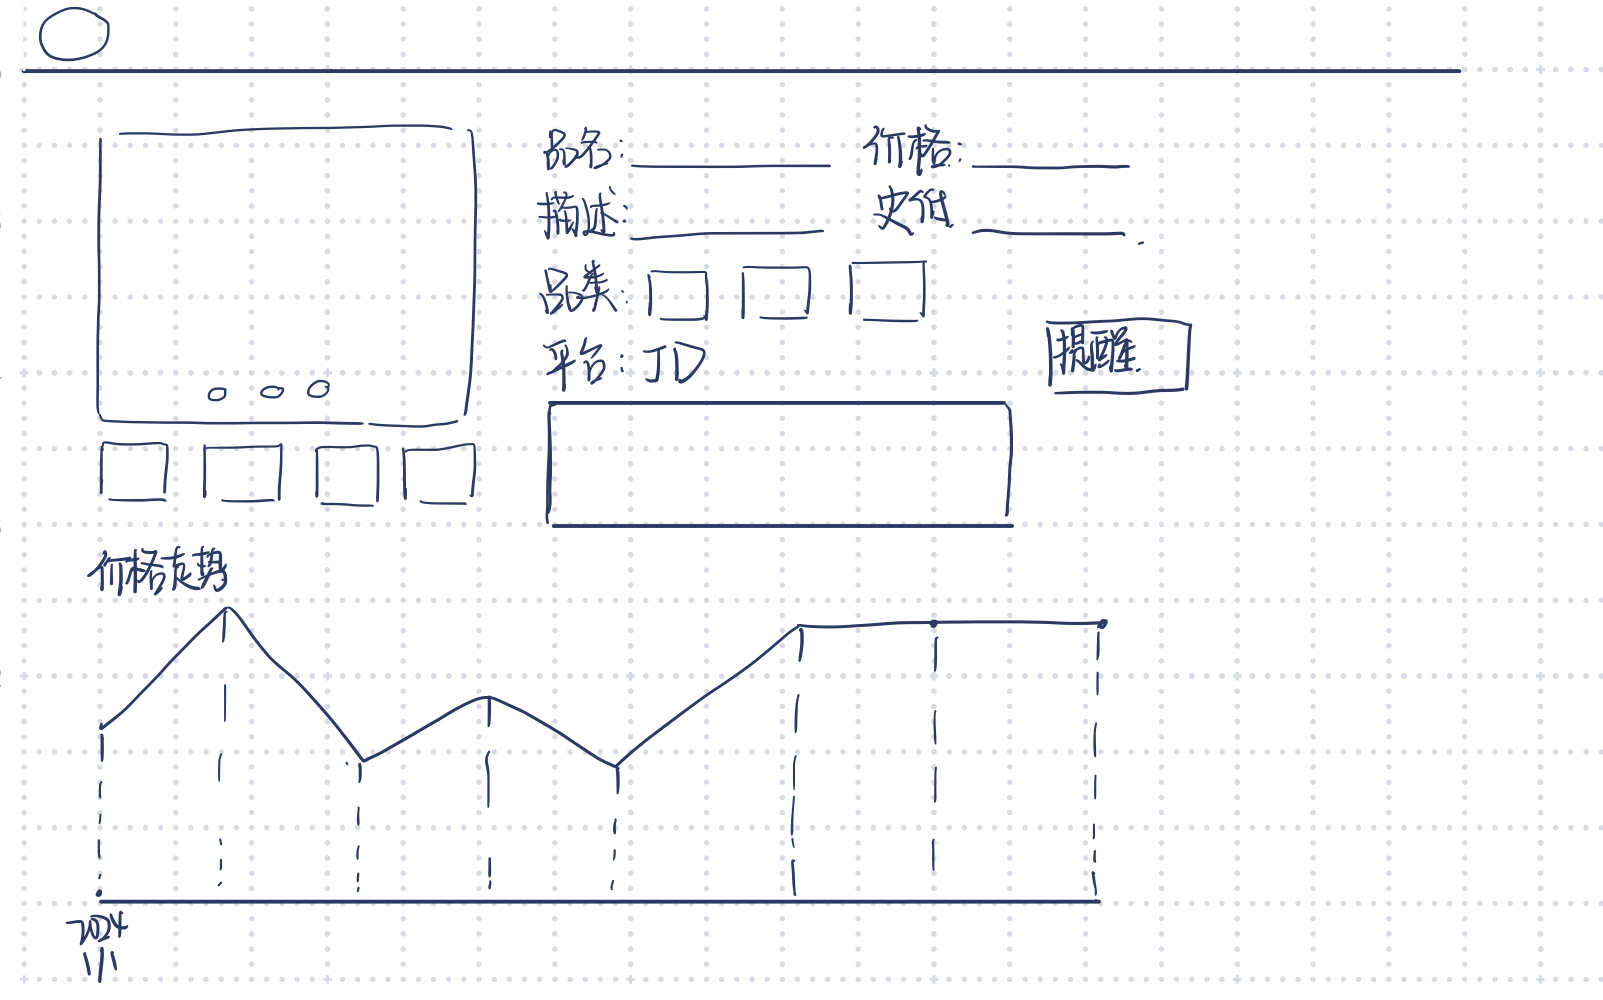 品名: 价格:
描述: 史低
品类:
平台: JD
提醒
价格走势
2024
1/1